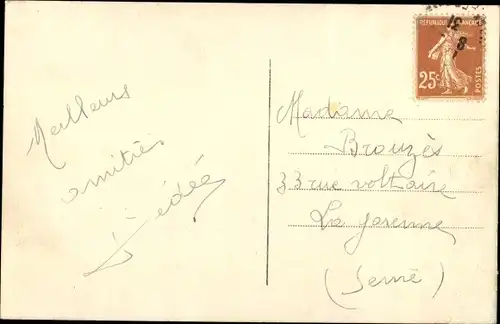 Meilleurs
amitiés
Dédée
RÉPUBLIQUE FRANÇAISE
25c
POSTES
8
Madame
Brouzès
33 rue voltaire
La garenne
(Seine)